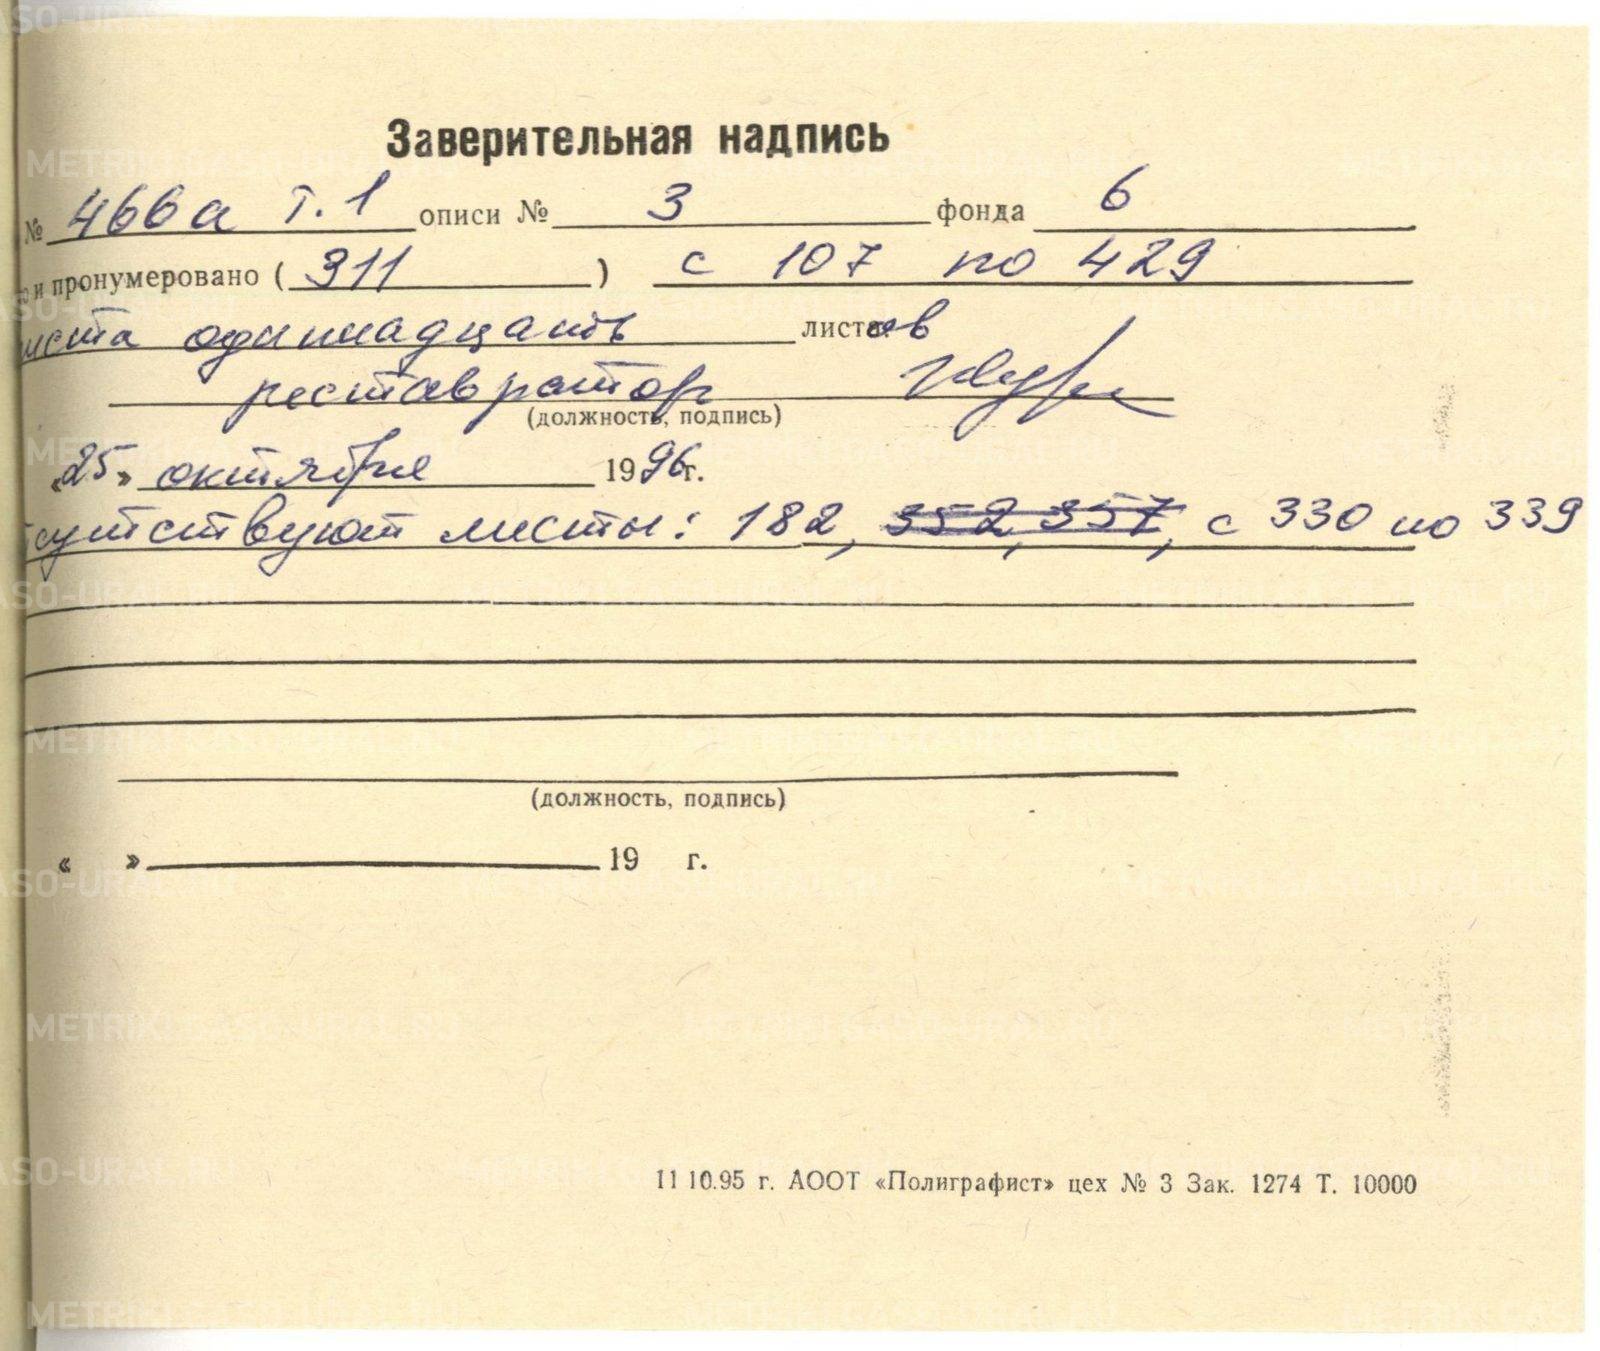 Заверительная надпись
№ 466а т. 1 описи № 3 фонда 6
и пронумеровано ( 311 ) с 107 по 429
иста одиннадцать листов
реставратор
(должность, подпись)
«25» октября 1996 г.
сутствуют листы: 182, 352, 357, с 330 по 339
(должность, подпись)
« » 19 г.
11 10.95 г. АООТ «Полиграфист» цех № 3 Зак. 1274 Т. 10000
METRIKI.GASO-URAL.RU